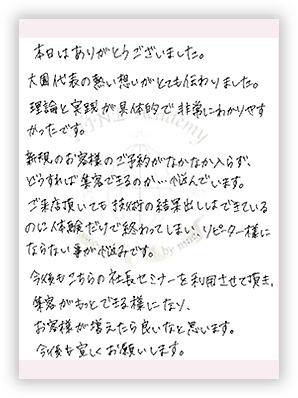 本日はありがとうございました。
大国代表の熱い想いがとても伝わりました。
理論と実践が具体的で非常にわかりやす
かったです。
新規のお客様のご予約がなかなか入らず、
どうすれば集客できるのか…悩んでいます。
ご来店頂いても技術の結果出しはできている
のに体験だけで終わってしまい、リピーター様に
ならない事が悩みです。
今後もこちらの社長セミナーを利用させて頂き、
集客がもっとできる様になり、
お客様が増えたら良いなと思います。
今後も宜しくお願いします。
Academy
by